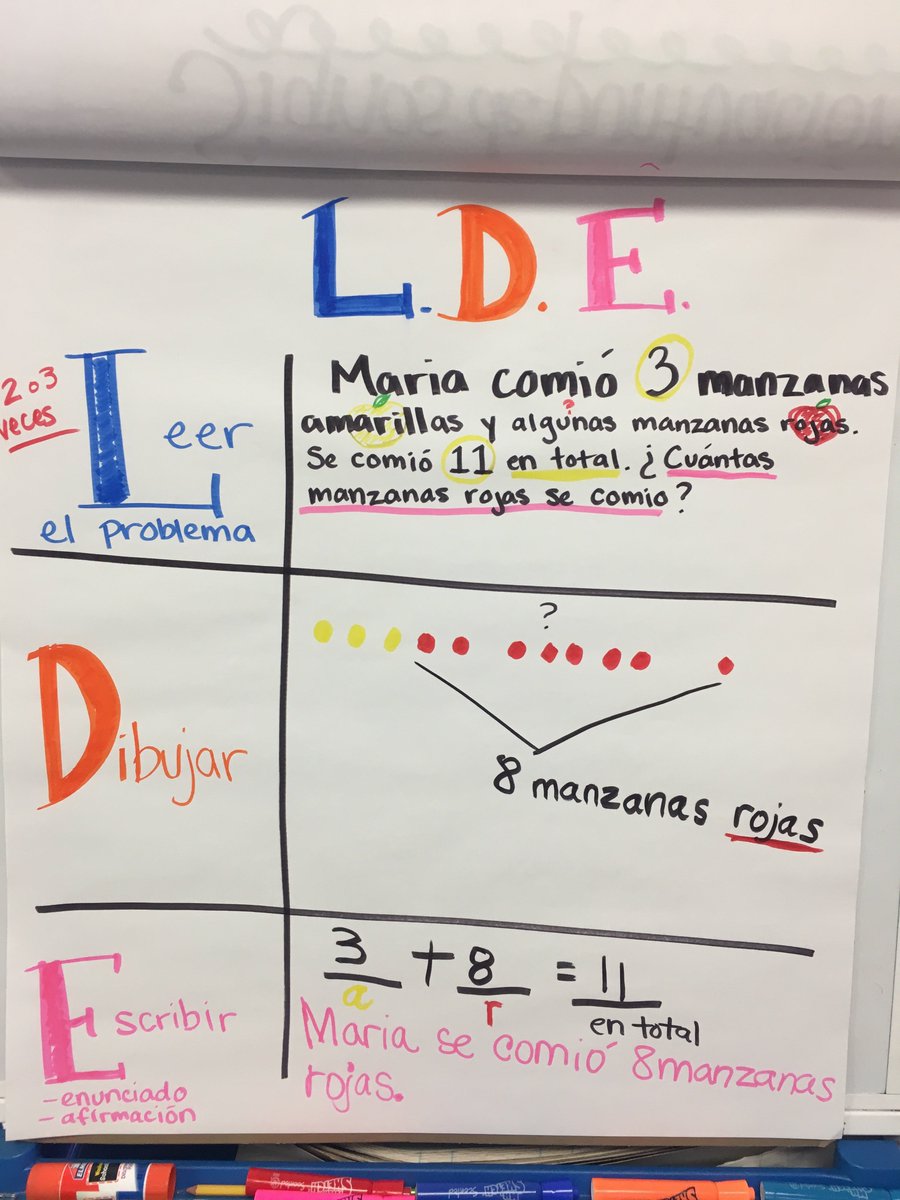 L. D. E.
2 o 3
veces
Leer
el problema
Maria comió 3 manzanas
amarillas y algunas manzanas rojas.
?
Se comió 11 en total. ¿Cuántas
manzanas rojas se comio?
Dibujar
?
8 manzanas rojas
Escribir
-enunciado
-afirmación
3 + 8 = 11
a r en total
Maria se comió 8 manzanas
rojas.